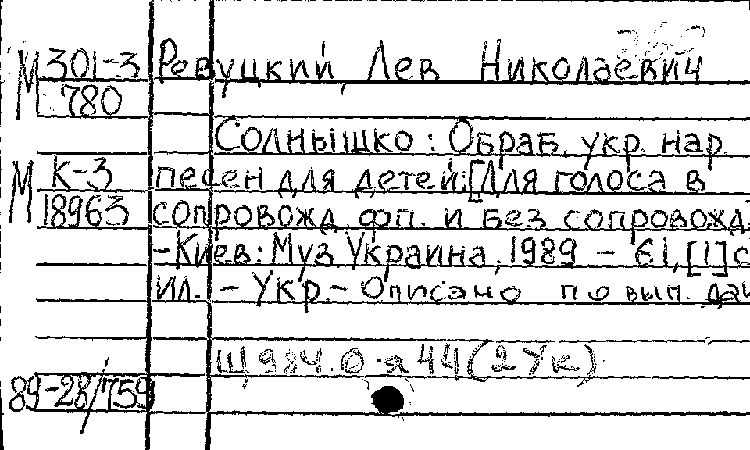 М 301-3 Ревуцкий, Лев Николаевич
780
Солнышко : Обраб. укр. нар.
М К-3 песен для детей: [Для голоса в
18963 сопровожд. фп. и без сопровожд.
-Киев: Муз. Украина, 1989 - 61, [1] с
ил. - Укр. - Описано по вып. дан
Щ 984.0-я 44 (2 Ук)
89-28/759